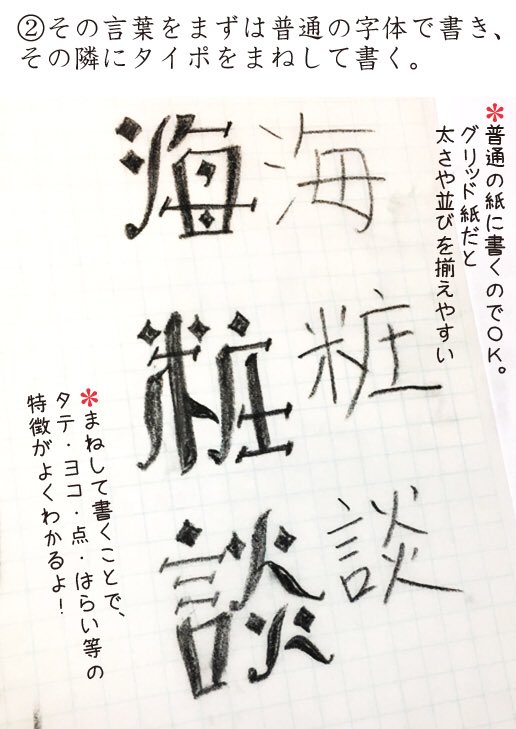 ②その言葉をまずは普通の字体で書き、
その隣にタイポをまねして書く。
*普通の紙に書くのでOK。
グリッド紙だと
太さや並びを揃えやすい
海 海
粧 粧
談 談
*まねして書くことで、
タテ・ヨコ・点・はらい等の
特徴がよくわかるよ！